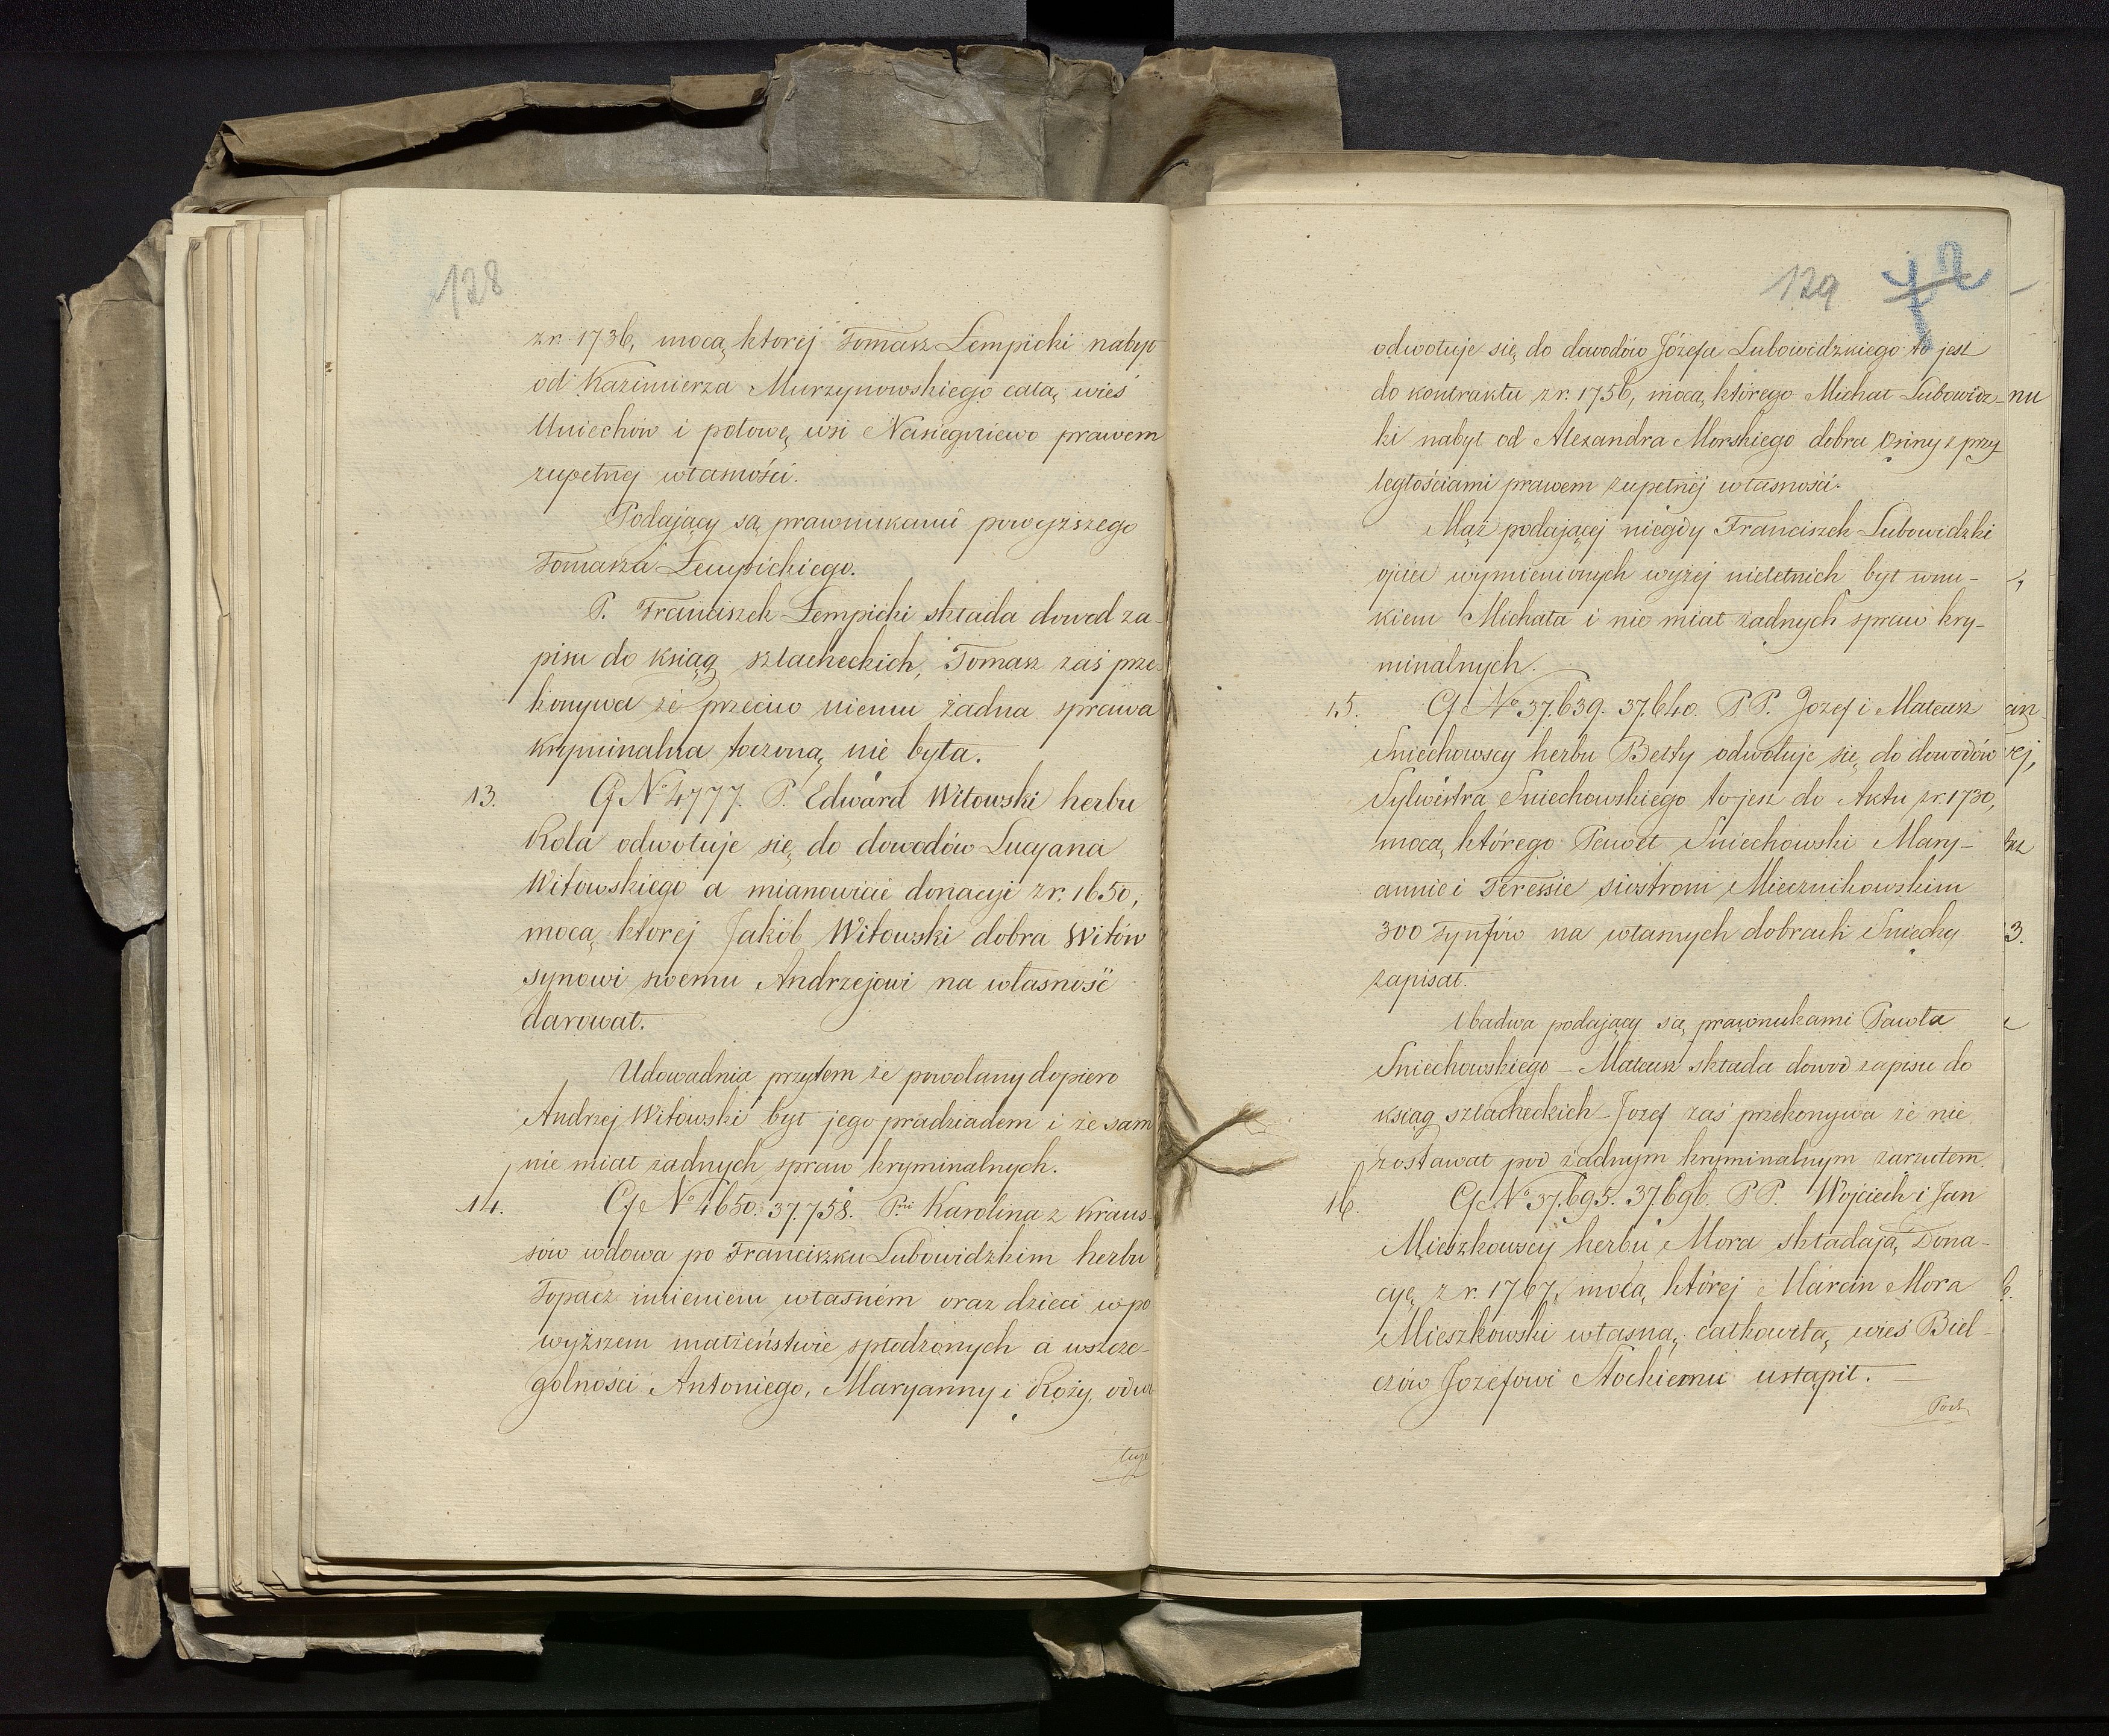 128
z r. 1736, mocą ktorej Tomasz Lempicki nabył
od Kazimierza Murzynowskiego całą wieś
Uniechow i połowę wsi Nasiegniewo prawem
zupełnej własności.
Podający są prawnukami powyższego
Tomasza Lempickiego.
P. Franciszek Lempicki składa dowod za-
pisu do ksiąg szlacheckich, Tomasz zaś prze-
konywa że przeciw niemu żadna sprawa
kryminalna toczoną nie była.
13. G N° 4777. P. Edward Witowski herbu
Rola odwołuje się do dowodów Lucyana
Witowskiego a mianowicie donacyi z r. 1650,
mocą ktorej Jakób Witowski dobra Witów
synowi swemu Andrzejowi na własność
darował.
Udowadnia przytem że powołany dopiero
Andrzej Witowski był jego pradziadem i że sam
nie miał żadnych spraw kryminalnych.
14. G N° 4650. 37.758. Pni Karolina z Kraus-
sów wdowa po Franciszku Lubowidzkim herbu
Topacz imieniem własném oraz dzieci w po
wyższem małżeństwie spłodzonych a wszcze-
golności Antoniego, Maryanny i Roży, odwo
łuje
129
72
odwołuje się do dowodów Józefa Lubowidzkiego to jest
do kontraktu z r. 1756, mocą którego Michał Lubowidz-
ki nabył od Alexandra Morskiego dobra Osiny z przy
ległościami prawem zupełnej własności.
Mąż podającej niegdy Franciszek Lubowidzki
ojciec wymienionych wyżej nieletnich był wnu-
kiem Michała i nie miał żadnych spraw kry-
minalnych.
15. G N° 37.639. 37.640. P.P. Jozef i Mateusz
Sniechowscy herbu Bełty odwołuje się do dowodów
Sylwestra Sniechowskiego to jest do Aktu z r. 1730,
mocą którego Paweł Sniechowski Mary-
annie i Teressie siostrom Miecznikowskim
300 Tynfów na własnych dobrach Sniechy
zapisał.
Obadwa podający są prawnukami Pawła
Sniechowskiego – Mateusz składa dowod zapisu do
ksiąg szlacheckich – Jozef zaś przekonywa że nie
zostawał pod żadnym kryminalnym zarzutem.
16. G N° 37.695. 37.696. P.P. Wojciech i Jan
Mieszkowscy herbu Mora składają Dona-
cyę z r. 1767, mocą której Marcin Mora
Mieszkowski własną całkowitą wieś Biel-
czów Jozefowi Stockiemu ustąpił.